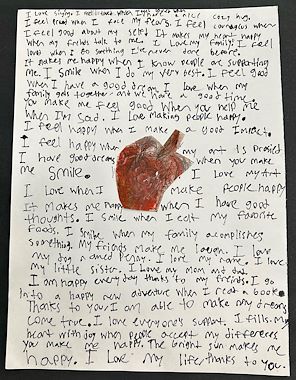 I love singing. I feel loved when I get a nice cozy hug.
I feel proud when I face my fears. I feel courageous when
I feel good about my self. It makes my heart happy
when my friends talk to me. I love my family. I feel
loved when I do something I've never done before.
It makes me happy when I know people are supporting
me. I Smile when I do my very best. I feel good
when I have a good dream. I love when my
family gets together and we have a good time.
You make me feel good when you help me
when I'm sad. I love making people happy.
I feel happy when I make a good impact.
I feel happy when my art is praised
I have good dreams when you make
me smile. I love my art
I love when I make people happy
It makes me happy when I have good
thoughts. I smile when I eat my favorite
foods. I smile when my family acomplishes
something. My friends make me laugh. I love
my dog named Penny. I love my name. I love
my little sister. I love my mom and dad.
I am happy every day thanks to my friends. I go
into a happy new adventure when I read a book.
Thanks to you I am able to make my dreams
come true. I love everyone's support. I fills my
heart with joy when people accept my differences
you make me happy. The bright sun makes me
happy. I love my life, thanks to you.